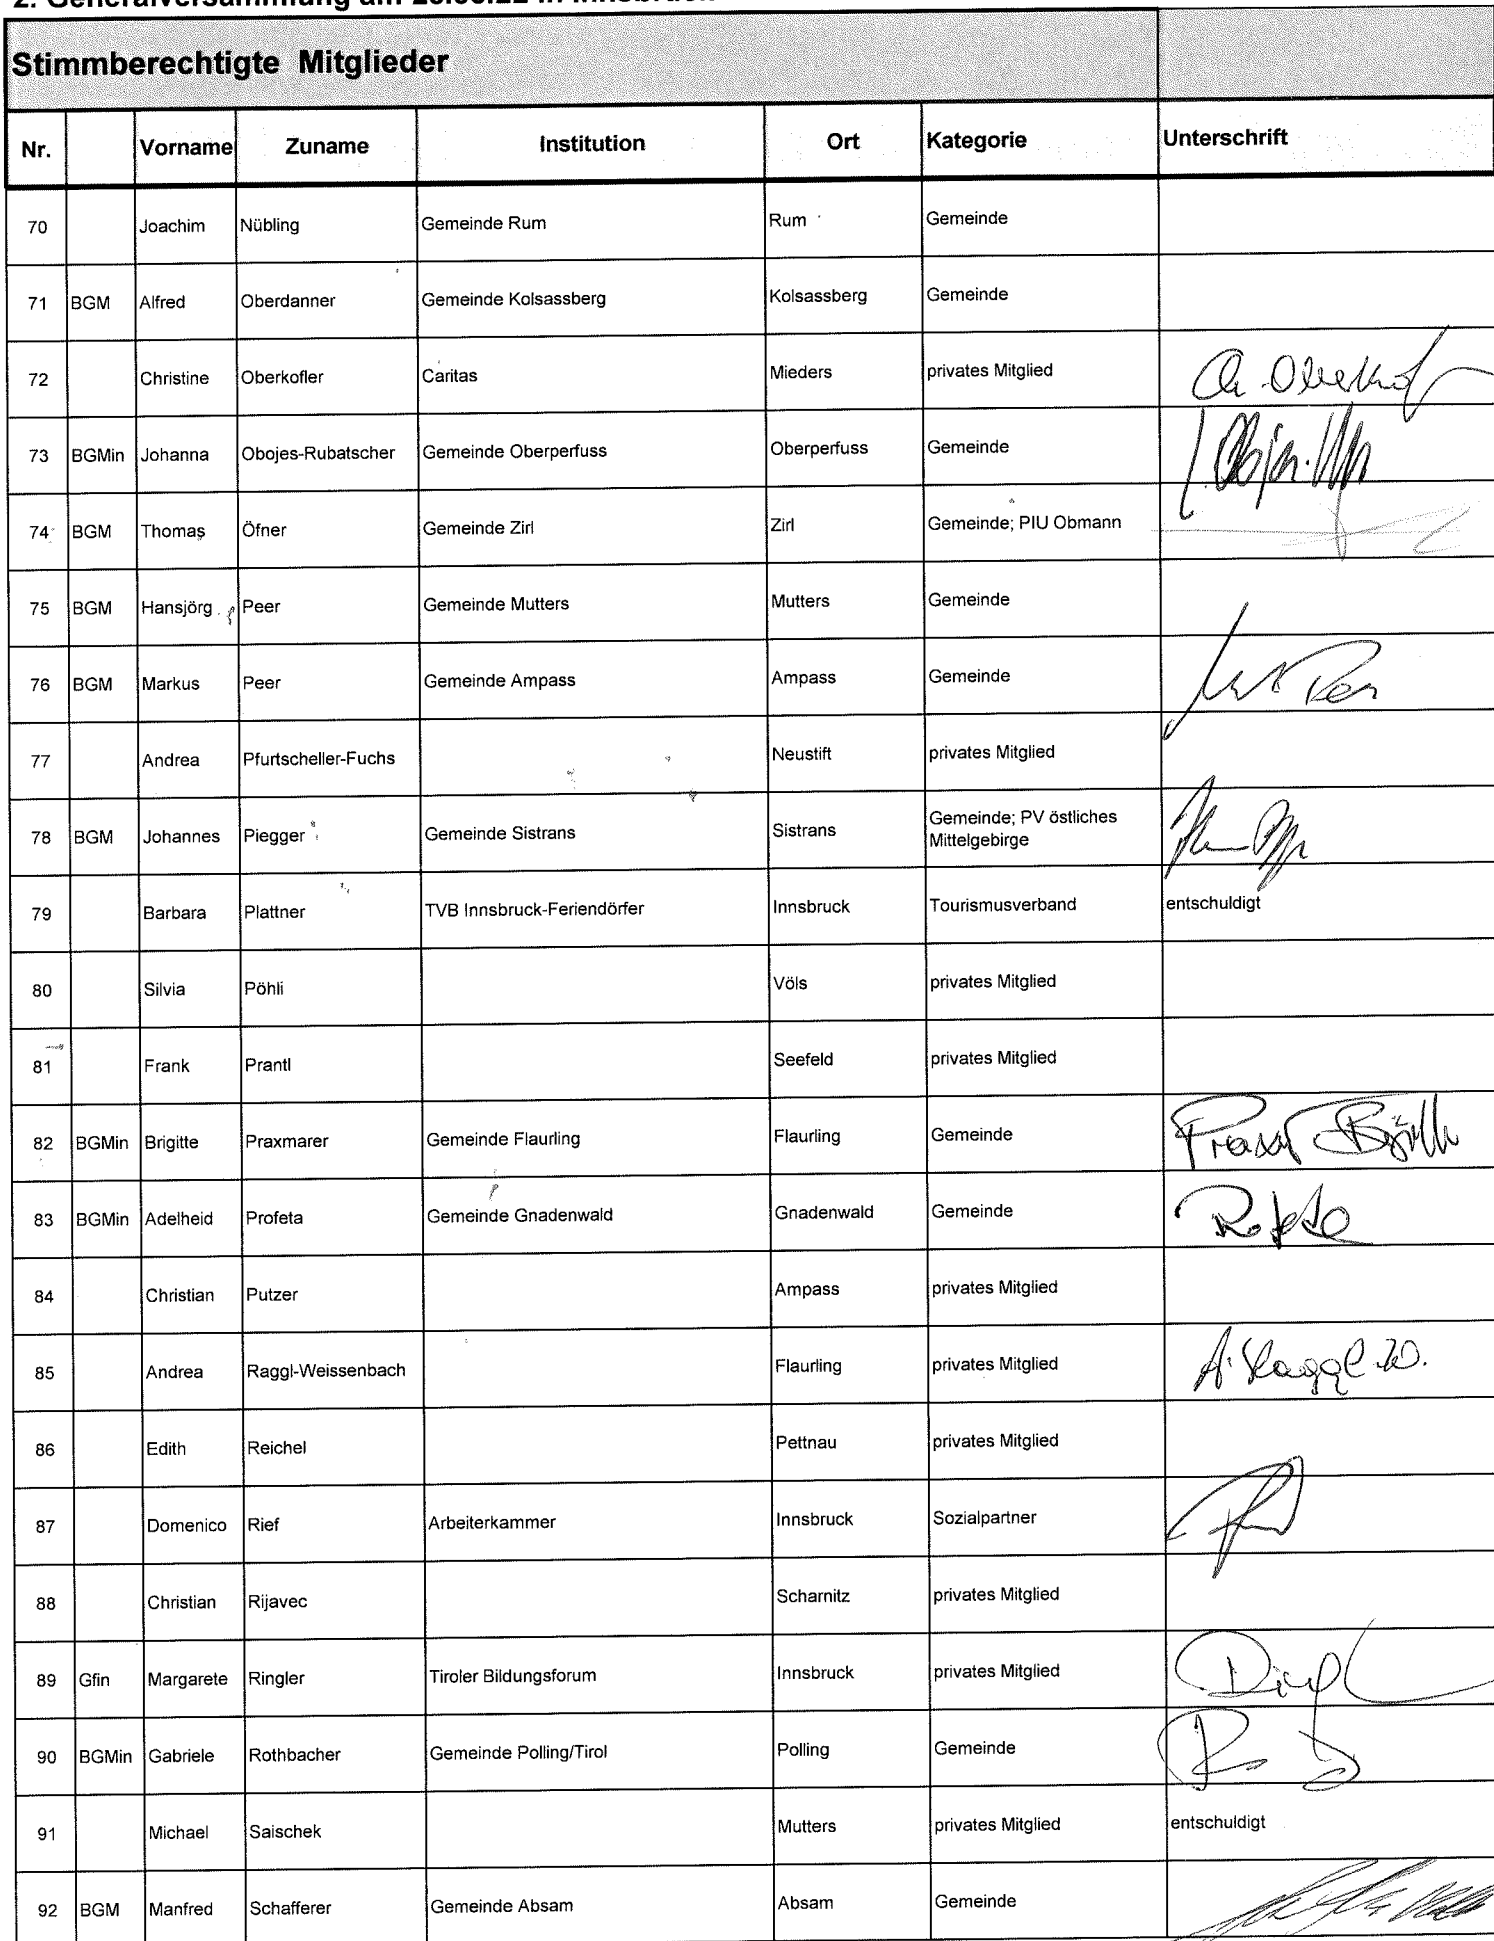 2. Generalversammlung am
Stimmberechtigte Mitglieder
Nr. Vorname Zuname Institution Ort Kategorie Unterschrift
70 Joachim Nübling Gemeinde Rum Rum Gemeinde
71 BGM Alfred Oberdanner Gemeinde Kolsassberg Kolsassberg Gemeinde
72 Christine Oberkofler Caritas Mieders privates Mitglied
73 BGMin Johanna Obojes-Rubatscher Gemeinde Oberperfuss Oberperfuss Gemeinde
74 BGM Thomas Öfner Gemeinde Zirl Zirl Gemeinde; PIU Obmann
75 BGM Hansjörg Peer Gemeinde Mutters Mutters Gemeinde
76 BGM Markus Peer Gemeinde Ampass Ampass Gemeinde
77 Andrea Pfurtscheller-Fuchs Neustift privates Mitglied
78 BGM Johannes Piegger Gemeinde Sistrans Sistrans Gemeinde; PV östliches
Mittelgebirge
79 Barbara Plattner TVB Innsbruck-Feriendörfer Innsbruck Tourismusverband entschuldigt
80 Silvia Pöhli Völs privates Mitglied
81 Frank Prantl Seefeld privates Mitglied
82 BGMin Brigitte Praxmarer Gemeinde Flaurling Flaurling Gemeinde
83 BGMin Adelheid Profeta Gemeinde Gnadenwald Gnadenwald Gemeinde
84 Christian Putzer Ampass privates Mitglied
85 Andrea Raggl-Weissenbach Flaurling privates Mitglied A. Raggl-W.
86 Edith Reichel Pettnau privates Mitglied
87 Domenico Rief Arbeiterkammer Innsbruck Sozialpartner
88 Christian Rijavec Scharnitz privates Mitglied
89 Gfin Margarete Ringler Tiroler Bildungsforum Innsbruck privates Mitglied
90 BGMin Gabriele Rothbacher Gemeinde Polling/Tirol Polling Gemeinde
91 Michael Saischek Mutters privates Mitglied entschuldigt
92 BGM Manfred Schafferer Gemeinde Absam Absam Gemeinde